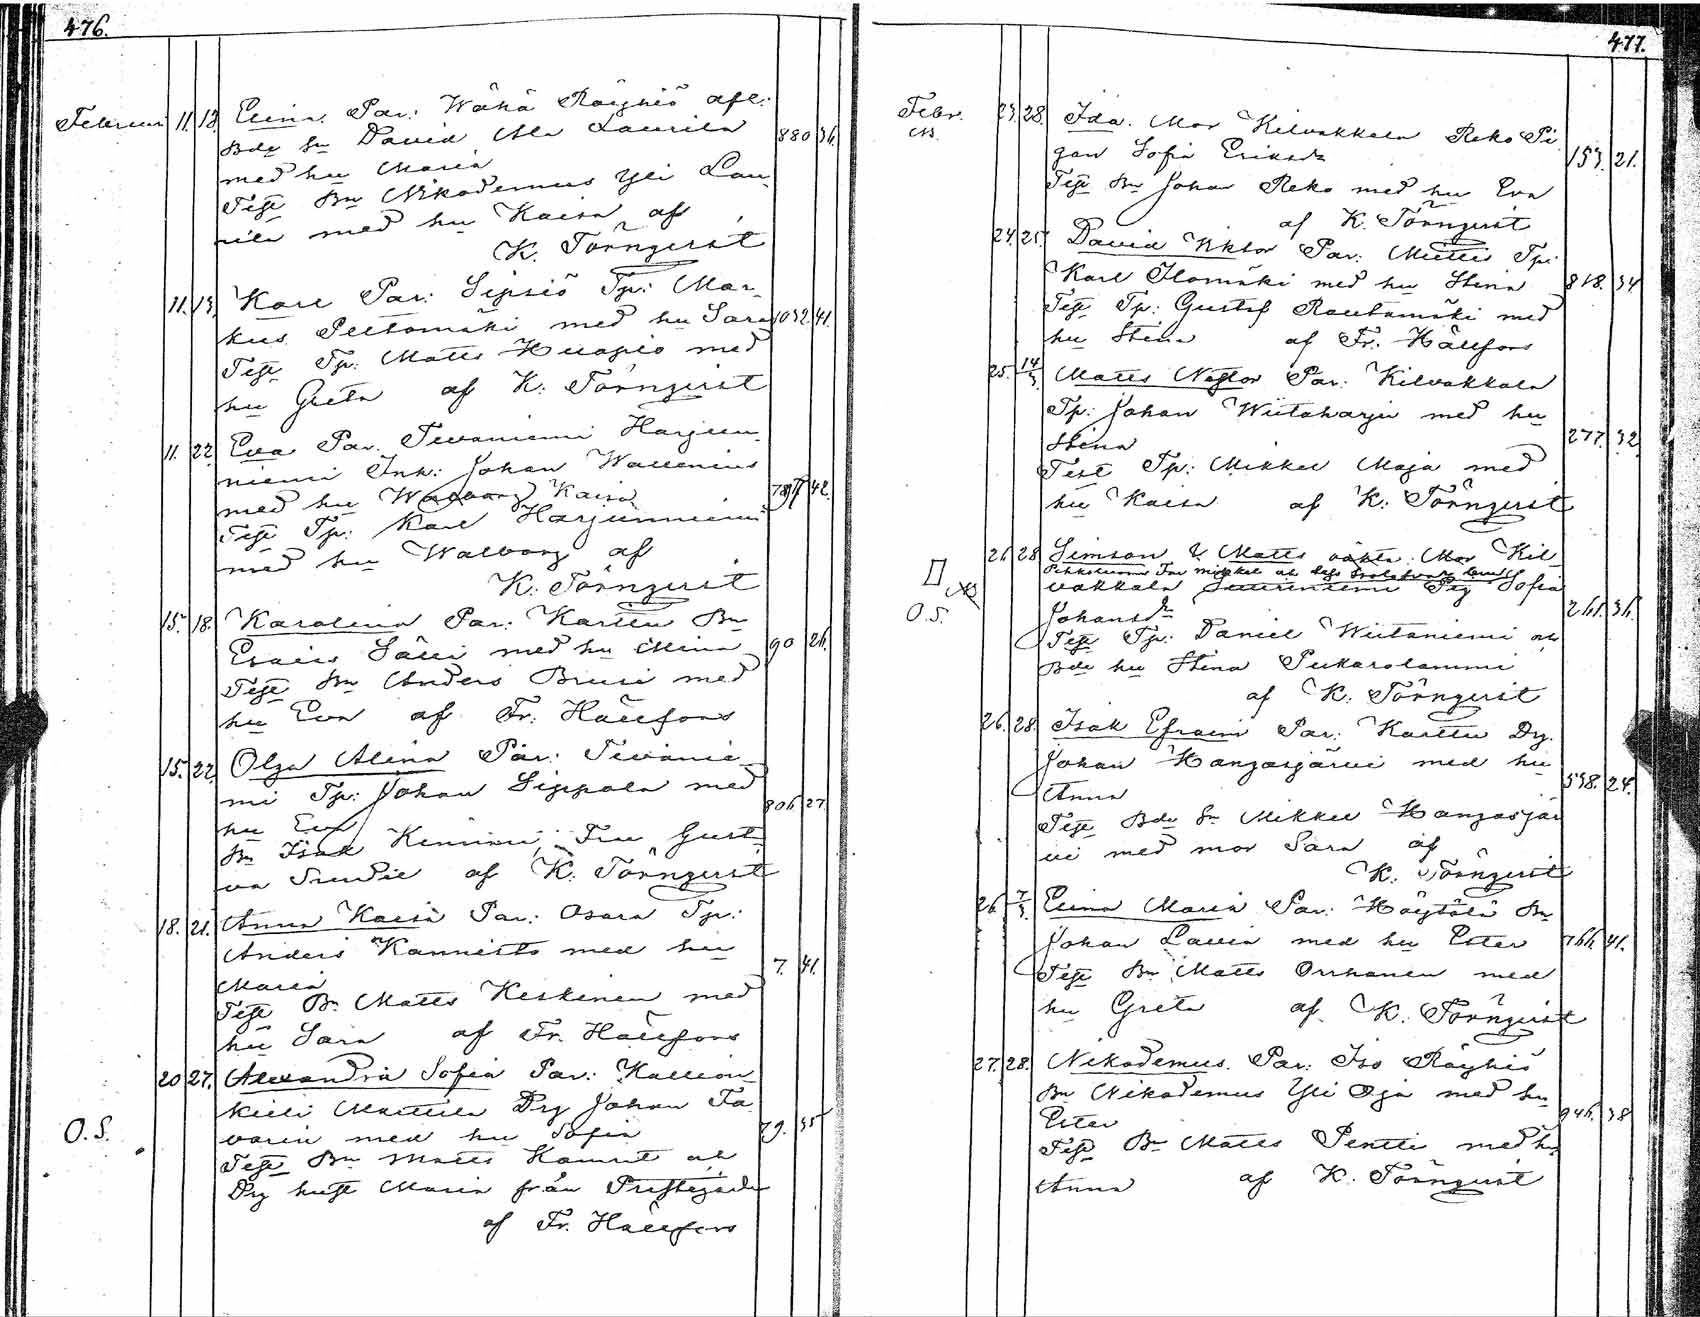 476.
Februari 11. 13. Elina. Par: Wähä Röyhiö afl:
Bde Sn David Ala Laurila
med hu Maria 880 36.
Test Bn Nikodemus Yli Lau-
rila med hu Kaisa af
K. Törnqvist
11. 13. Karl Par: Sipsiö Tp: Mar-
kus Peltomäki med hu Sara 1032. 41.
Test Tp: Matts Huapio med
hu Greta af K: Törnqvist
11. 22. Eva Par. Tevaniemi Harjun-
niemi Inh: Johan Wallenius
med hu Kaisa 42.
Test Tp: Karl Harjunniemi
med hu Walborg af
K. Törnqvist
15. 18. Karolina Par: Karttu Bn
Esaias Sälli med hu Mina 90 26.
Test Bn Anders Brusi med
hu Eva af Fr: Hällfors
15. 22. Olga Alina Par: Tevanie-
mi Tp: Johan Sippola med
hu Eva 806 27.
Bn Isak Kenimi, Fru Gusta-
va af K: Törnqvist
18. 21. Anna Kaisa Par: Osara Tp:
Anders Kannisto med hu
Maria 7. 41.
Test Bn Matts Keskinen med
hu Sara af Fr. Hällfors
20 27. Alexandra Sofia Par: Kallion-
kieli Mattila Drg Johan Ta-
varin med hu Sofia 79. 35
O.S.
Test Bn Matts Hamrit och
Drg hust Maria från Prestegården
af Fr. Hällfors
477.
Febr. 23. 28. Ida. Mor Kilvakkala Reko Pi-
gan Sofia Eriksdr 153. 21.
Test Bn Johan Reko med hu Eva
af K. Törnqvist
24. 25. David Viktor Par: Miettis Tp:
Karl Ilomäki med hu Stina 818. 34
Test Tp: Gustaf Rautamäki med
hu Stina af Fr. Hällfors
25. 14/3. Matts Nestor Par: Kilvakkala
Tp: Johan Wiitaharju med hu
Stina 277. 32
Test Tp: Mikkel Maja med
hu Kaisa af K: Törnqvist
26. 28. Simson & Matts oäkta Mor Kil-
vakkala Pig Sofia
O.S. Johansdr 261. 36.
Test Tp: Daniel Wiitaniemi och
Bde hu Stina Pukarolammi
af K: Törnqvist
26. 28. Isak Efraim Par: Karttu Dg.
Johan Kangasjärvi med hu
Anna 538. 24.
Test Bde Sn Mikkel Kangasjär-
vi med mor Sara af
K. Törnqvist
26. 7/3. Elina Maria Par: Höytölä Bn
Johan Lauia med hu Ester 766. 41.
Test Bn Matts Orrhanen med
hu Greta af K. Törnqvist
27. 28. Nikodemus. Par: Iso Röyhiö
Bn Nikodemus Yli Oja med hu
Ester 946. 38
Test Bn Matts Pentti med hu
Anna af K. Törnqvist